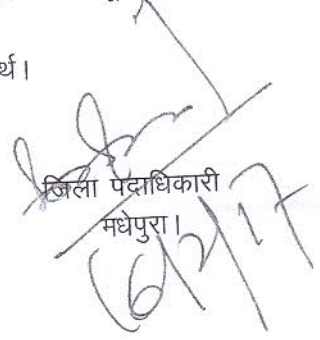 र्थ।
जिला पदाधिकारी
मधेपुरा।
16/2/17